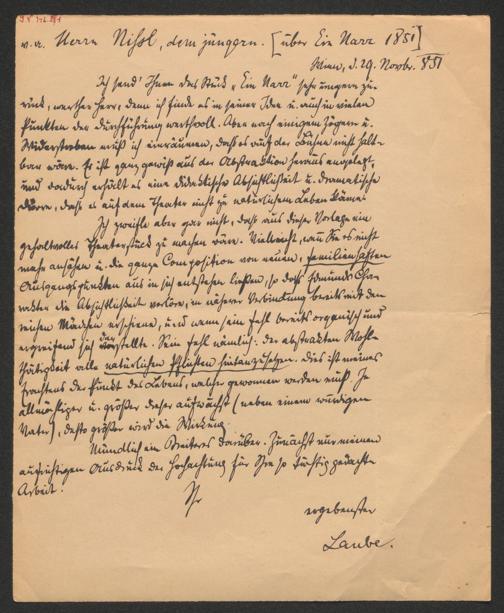 I.N. 146.281
Herrn Nissl, dem jüngern. [über Ein Narr 1851]
Wien, d. 29. Novbr. 851
Ich send' Ihnen das Stück „Ein Narr" sehr ungern zu-
rück, werther Herr, denn ich finde es in seiner Idee u. auch in vielen
Punkten der Durchführung werthvoll. Aber nach einigem Zögern u.
Widerstreben muß ich einräumen, daß es auf der Bühne nicht halt-
bar wäre. Es ist ganz gewiß aus der Abstraktion heraus angelegt,
und dadurch erhält es eine didaktische Absichtlichkeit u. dramatische
Dürre, daß es auf dem Theater nicht zu natürlichem Leben käme.
Ich zweifle aber gar nicht, daß aus dieser Vorlage ein
gehaltvolles Theaterstück zu machen wäre. Vielleicht, wenn Sie es nicht
mehr ansehen u. die ganze Composition von neuen, familienhaften
Ausgangspunkten aus in sich entstehen ließen, so daß Edmunds Cha-
rakter die Absichtlichkeit verlöre, in näherer Verbindung bereits mit dem
reichen Mädchen erschiene, und wenn sein Fehl bereits organisch und
ergreifend sich darstellte. Sein Fehl nämlich: der abstrakten Wohl-
thätigkeit alle natürlichen Pflichten hintanzusetzen. Dies ist meines
Erachtens der Punkt des Lebens, welcher gewonnen werden muß. Je
allmähliger u. größer dieser aufwächst (neben einem würdigen
Vater), desto größer wird die Wirkung.
Mündlich ein Weiteres darüber. Zunächst nur meinen
aufrichtigen Ausdruck der Hochachtung für Ihre so tüchtig gedachte
Arbeit.
Ihr
ergebenster
Laube.